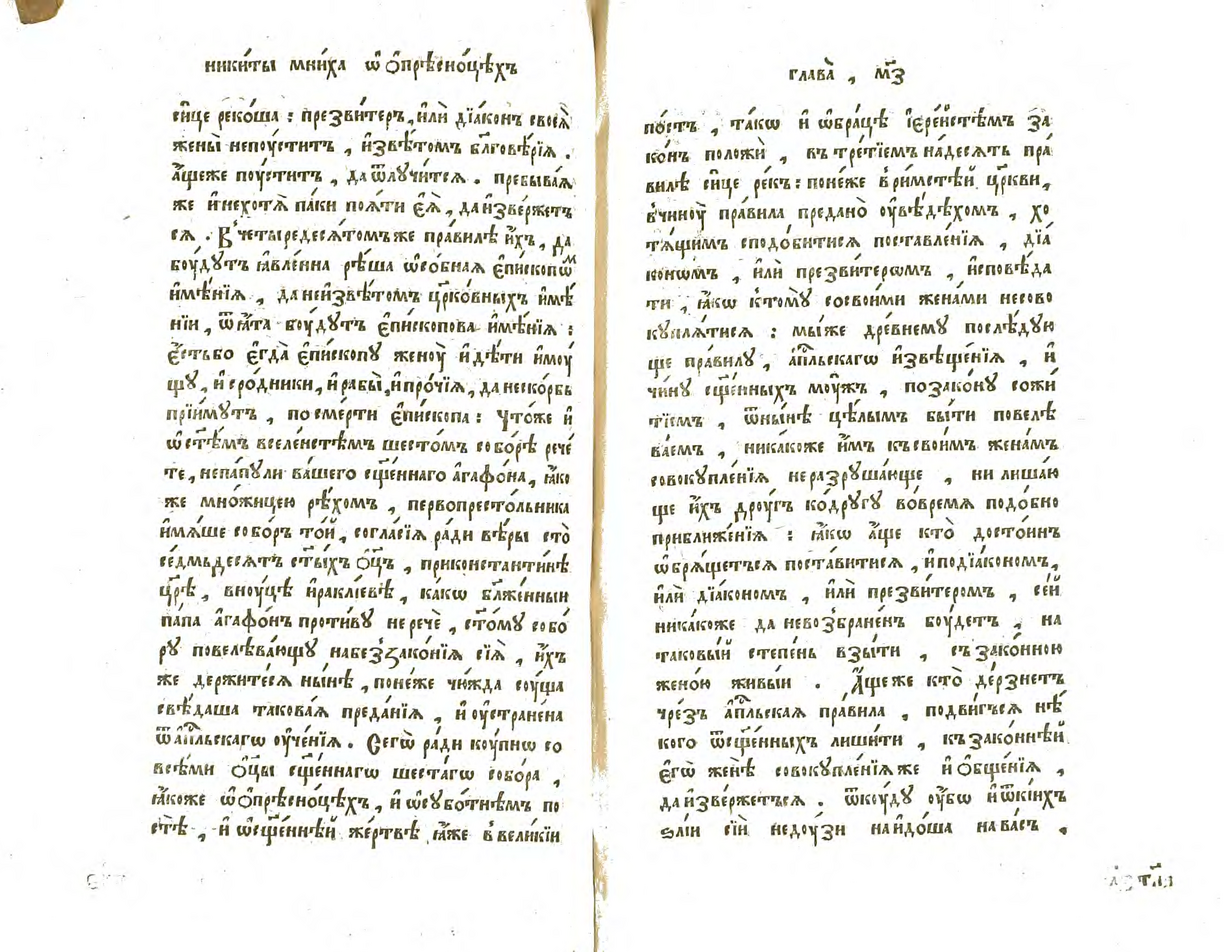 ники́ты мни́ха ѡ҆ ѻ҆прѣсно́цѣхъ
си́це реко́ша : презви́теръ, и҆лѝ дїа́конъ своеѧ̀
жены̀ непоу́ститъ , и҆звѣ́томъ бл҃говѣ́рїѧ .
а҆́щеже поу́ститъ , да ѿлꙋчи́тсѧ . пребыва́ѧ
же и҆ нехотѧ̀ па́ки поѧ́ти є҆ѧ̀ , да и҆зве́ржет
сѧ . В̾четыредесѧ́томъже пра́вилѣ и҆́хъ , да
бꙋ́дꙋтъ ꙗ҆вле́нна рѣ́ша ѡ҆со́бнаѧ є҆пи́скопѡм
и҆мѣ́нїѧ , да неи҆звѣ́томъ цр҃ко́вныхъ и҆мѣ́
нїи , ѿꙗ҆́та бꙋ́дꙋтъ є҆пи́скопова и҆мѣ́нїѧ :
є҆́стьбо є҆гда̀ є҆пи́скопꙋ женꙋ̀ и҆ дѣ́ти и҆мꙋ́
щꙋ , и҆ сро́дники , и҆ рабы̀ , и҆ про́чїѧ , да неско́рбь
прїи́мꙋтъ , по сме́рти є҆пи́скопа : что́же и҆
ѡ҆ ст҃ѣ́мъ вселе́нстѣмъ шесто́мъ собо́рѣ рече́
те , непа́пꙋли ва́шего сщ҃е́ннаго а҆гафо́на , ꙗ҆́ко
же мно́жицею рѣ́хомъ , первопресто́льника
и҆мѧ́ше собо́ръ то́й , согла́сїѧ ра́ди вѣ́ры сто̀
се́дмьдесѧтъ ст҃ы́хъ ѻ҆ц҃ъ , приконстанти́нѣ
цр҃ѣ̀ , внꙋ́цѣ и҆ра́клїевѣ , ка́кѡ бл҃же́нныи
па́па а҆гафо́нъ проти́вꙋ не речѐ , ст҃о́мꙋ собо́
рꙋ повелѣва́ющꙋ набеззако́нїѧ сїѧ̀ , и҆́хъ
же держите́сѧ ны́нѣ , поне́же чю́жда сꙋ́ща
свѣ́даша такова́ѧ преда́нїѧ , и҆ оу҆стране́на
ѿ а҆пⷭ҇льскагѡ оу҆че́нїѧ . Сегѡ̀ ра́ди кꙋ́пнѡ со
всѣ́ми ѻ҆ц҃ы сщ҃е́ннагѡ шеста́гѡ собо́ра ,
ꙗ҆́коже ѡ҆ ѻ҆прѣсно́цѣхъ , и҆ ѡ҆ сꙋбо́тнѣмъ по
стѣ̀ , и҆ ѡ҆ сщ҃е́ннѣй же́ртвѣ ꙗ҆́же в̾вели́кїи
глава̀ , м҃з
по́стъ , та́кѡ и҆ ѡ҆ бра́цѣ і҆ере́йстѣмъ за
ко́нъ положѝ , въ тре́тїемъ на́десѧть пра́
вилѣ си́це ре́къ : поне́же в̾ри́мстѣй цр҃кви ,
в̾чинꙋ̀ пра́вила преданно̀ оу҆вѣ́дѣхомъ , хо
тѧ́щимъ сподо́битисѧ поставле́нїѧ , дїа́
конѡмъ , и҆лѝ презви́терѡмъ , и҆сповѣ́да
ти , ꙗ҆́кѡ к̾томꙋ̀ сосвои́ми жена́ми несово
кꙋплѧ́тисѧ : мы́же дре́внемꙋ послѣ́дꙋю
ще пра́вилꙋ , а҆пⷭ҇льскагѡ и҆звѣще́нїѧ , и҆
чи́нꙋ сщ҃е́нныхъ мꙋ́жъ , позако́нꙋ сожи́
тїемъ , ѿны́нѣ цѣ́лымъ бы́ти повелѣ
ва́емъ , ника́коже и҆́мъ къ свои́мъ жена́мъ
совокꙋпле́нїѧ неразрꙋша́юще , ни лиша́ю
ще и҆́хъ дрꙋ́гъ ко́дрꙋгꙋ во́времѧ подо́бно
приближе́нїѧ : ꙗ҆́кѡ а҆́ще кто̀ досто́инъ
ѡ҆брѧ́щетьсѧ поста́витисѧ , и҆подїа́кономъ ,
и҆лѝ дїа́кономъ , и҆лѝ презви́теромъ , се́й
ника́коже да невозбране́нъ бꙋ́детъ , на
таковы́й сте́пень взы́ти , съ зако́нною
жено́ю живы́и . А҆́щеже кто̀ де́рзнетъ
чре́зъ а҆пⷭ҇льскаѧ пра́вила , подви́гъсѧ нѣ́
кого ѿ сщ҃е́нныхъ лиши́ти , къ зако́ннѣй
є҆гѡ̀ женѣ̀ совокꙋпле́нїѧже и҆ ѻ҆бще́нїѧ ,
да и҆зве́ржетьсѧ . ѿкꙋ́дꙋ оу҆́бѡ и҆ ѿки́ихъ
ѕлі́и сїи́ недꙋ́зи наидо́ша на ва́съ ,